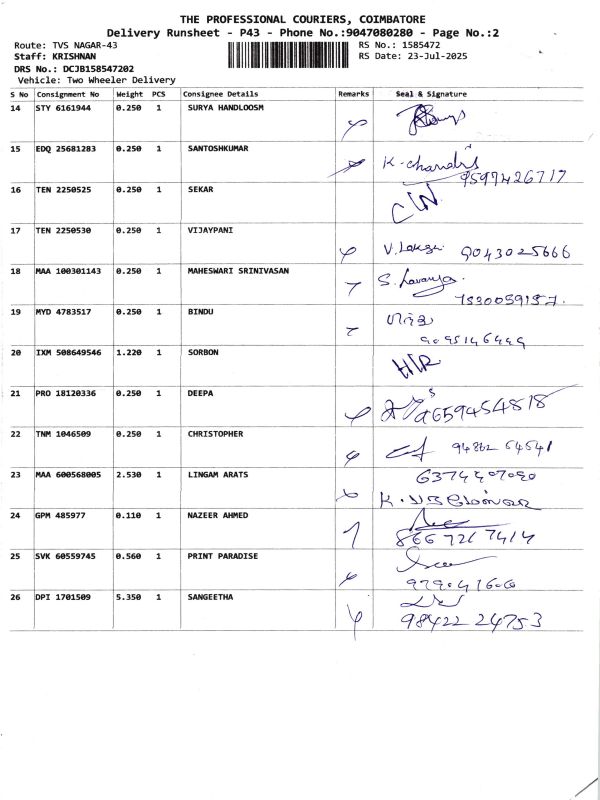 THE PROFESSIONAL COURIERS, COIMBATORE
Delivery Runsheet - P43 - Phone No.:9047080280 - Page No.:2
Route: TVS NAGAR-43 RS No.: 1585472
Staff: KRISHNAN RS Date: 23-Jul-2025
DRS No.: DCJB158547202
Vehicle: Two Wheeler Delivery
S No Consignment No Weight PCS Consignee Details Remarks Seal & Signature
14 STY 6161944 0.250 1 SURYA HANDLOOSM
15 EDQ 25681283 0.250 1 SANTOSHKUMAR K. chandrs
9597426717
16 TEN 2250525 0.250 1 SEKAR
17 TEN 2250530 0.250 1 VIJAYPANI 9043025666
18 MAA 100301143 0.250 1 MAHESWARI SRINIVASAN S. Lavanya
19 MYD 4783517 0.250 1 BINDU
20 IXM 508649546 1.220 1 SORBON
21 PRO 18120336 0.250 1 DEEPA 659454818
22 TNM 1046509 0.250 1 CHRISTOPHER
23 MAA 600568005 2.530 1 LINGAM ARATS
24 GPM 485977 0.110 1 NAZEER AHMED
8667267414
25 SVK 60559745 0.560 1 PRINT PARADISE
26 DPI 1701509 5.350 1 SANGEETHA
98422 24753